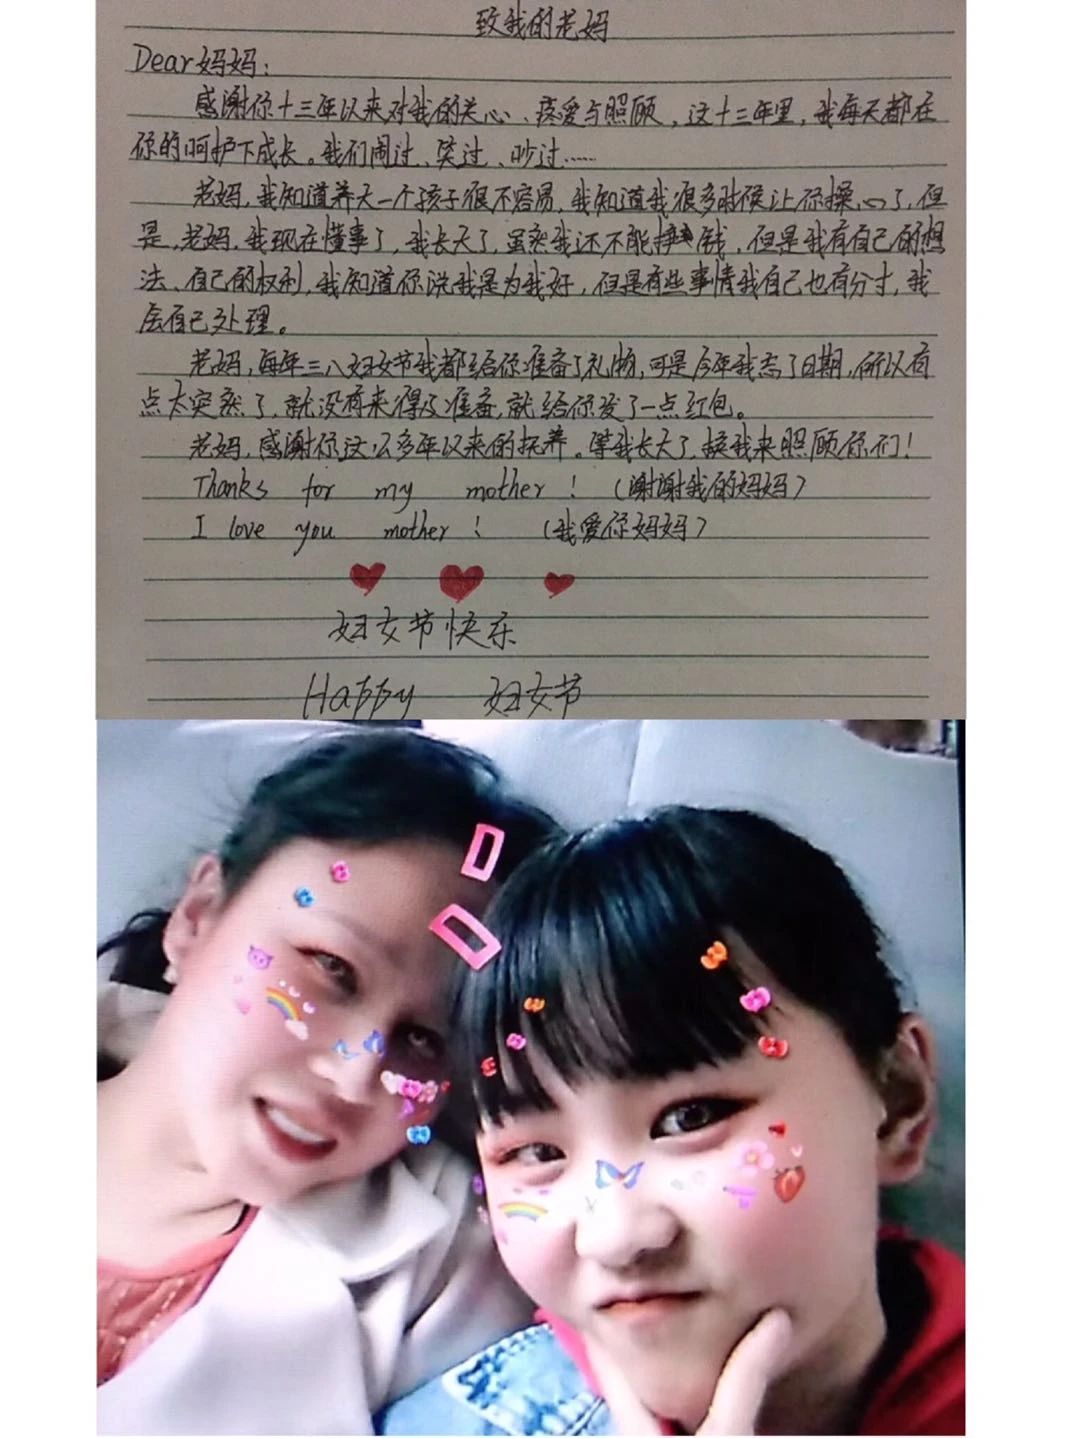 致我的老妈
Dear妈妈：
感谢你十三年以来对我的关心、疼爱与照顾，这十三年里，我每天都在
你的呵护下成长。我们闹过、笑过、吵过……
老妈，我知道养大一个孩子很不容易，我知道我很多时候让你操心了，但
是，老妈，我现在懂事了，我长大了，虽然我还不能挣钱，但是我有自己的想
法、自己的权利，我知道你说我是为我好，但是有些事情我自己也有分寸，我
会自己处理。
老妈，每年三八妇女节我都给你准备了礼物，可是今年我忘了日期，所以有
点太突然了，就没有来得及准备，就给你发了一点红包。
老妈，感谢你这么多年以来的抚养。等我长大了，换我来照顾你们！
Thanks for my mother！（谢谢我的妈妈）
I love you mother！（我爱你妈妈）
妇女节快乐
Happy 妇女节